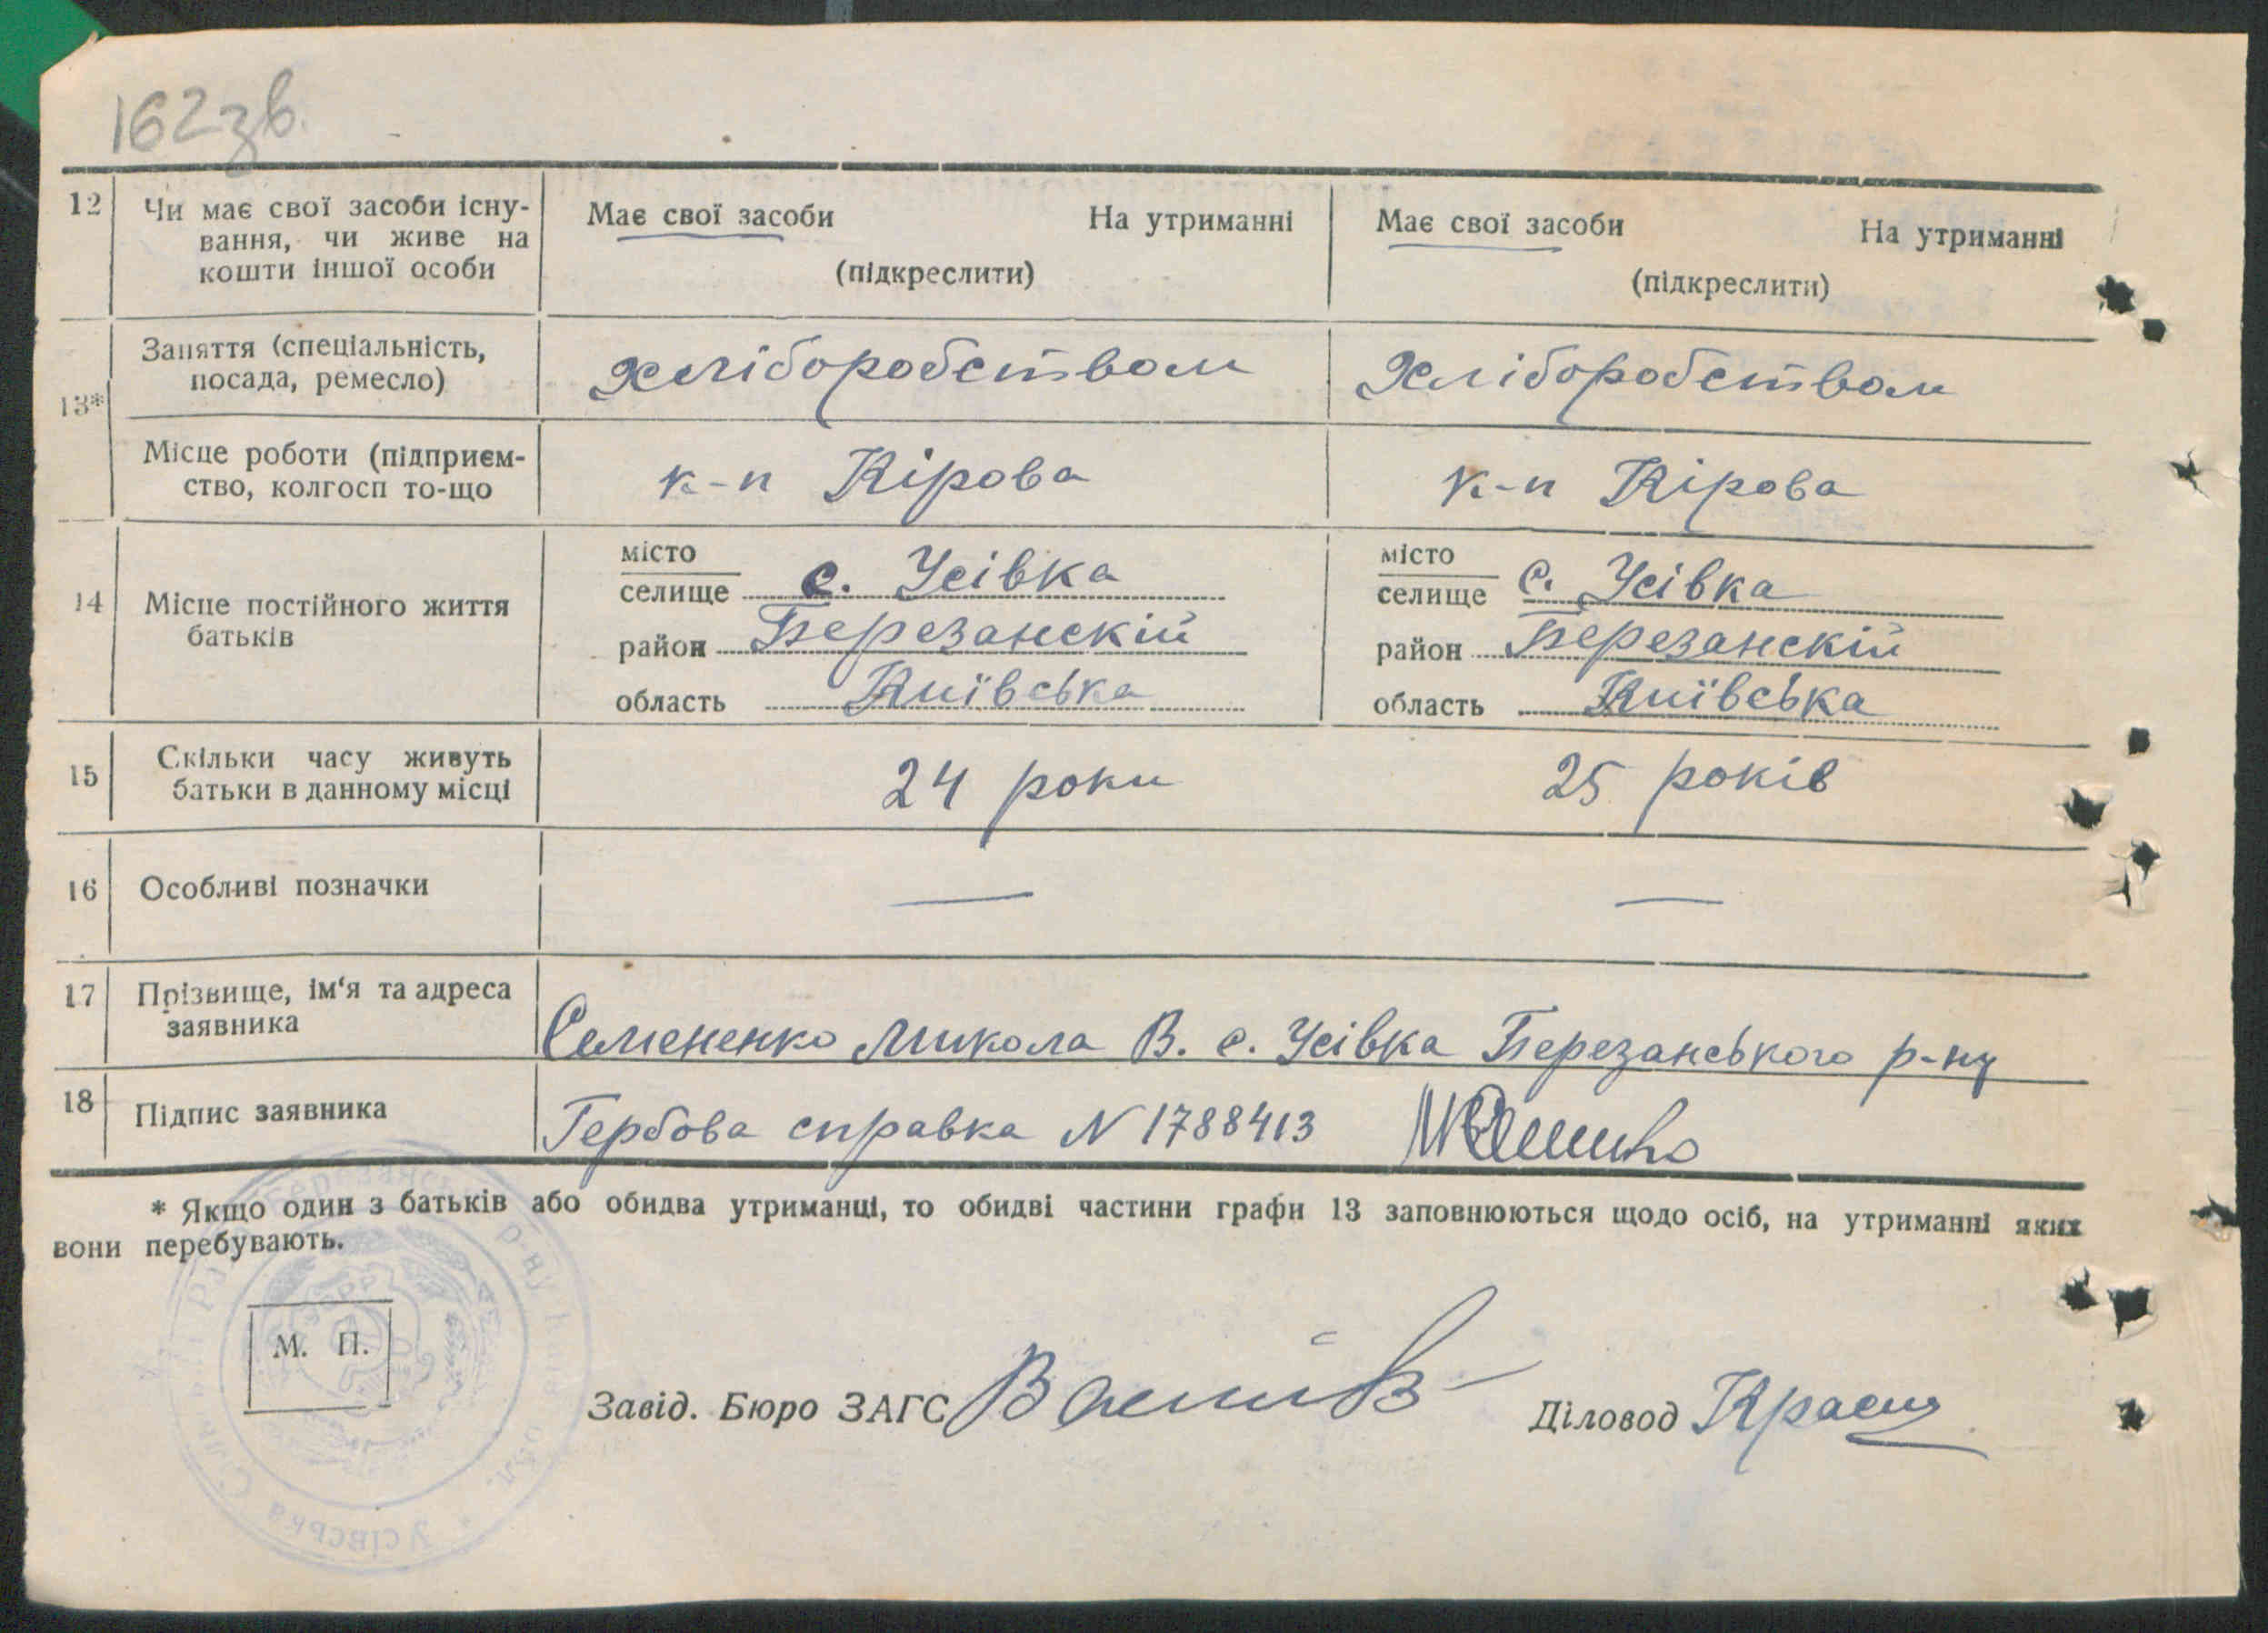 162зв.
12 Чи має свої засоби існу-
вання, чи живе на
кошти іншої особи
Має свої засоби На утриманні
(підкреслити)
Має свої засоби На утриманні
(підкреслити)
13*
Заняття (спеціальність,
посада, ремесло)
хліборобством хліборобством
Місце роботи (підприєм-
ство, колгосп то-що
к-п Кірова к-п Кірова
14 Місце постійного життя
батьків
місто
селище с. Усівка
район Березанскій
область Київська
місто
селище с. Усівка
район Березанскій
область Київська
15 Скільки часу живуть
батьки в данному місці
24 роки 25 років
16 Особливі позначки — —
17 Прізвище, ім‘я та адреса
заявника
Семененко Микола В. с. Усівка Березанського р-ну
18 Підпис заявника Гербова справка N 1788413
* Якщо один з батьків або обидва утриманці, то обидві частини графи 13 заповнюються щодо осіб, на утриманні яких
вони перебувають.
М. П.
Завід. Бюро ЗАГС Діловод
Усівська